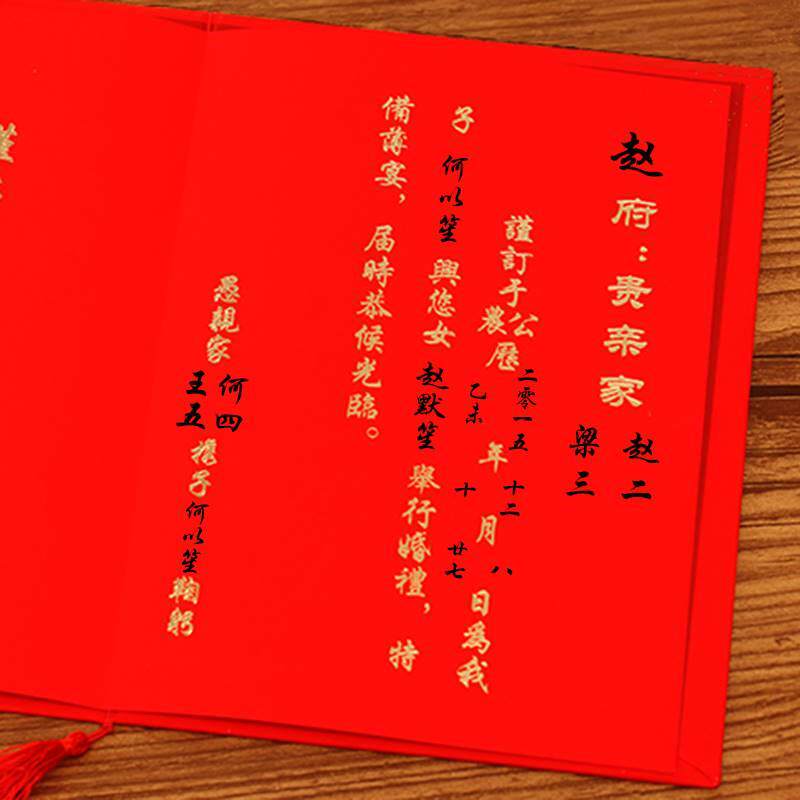 赵府：贵亲家 赵二
梁三
謹訂于公 二零一五 年 十二 月 八 日為我
農歷 乙未 十 廿七
子 何以笙 興您女 赵默笙 舉行婚禮，特
備薄宴，届時恭候光臨。
愚親家 何四
王五 攜子 何以笙 鞠躬
謹